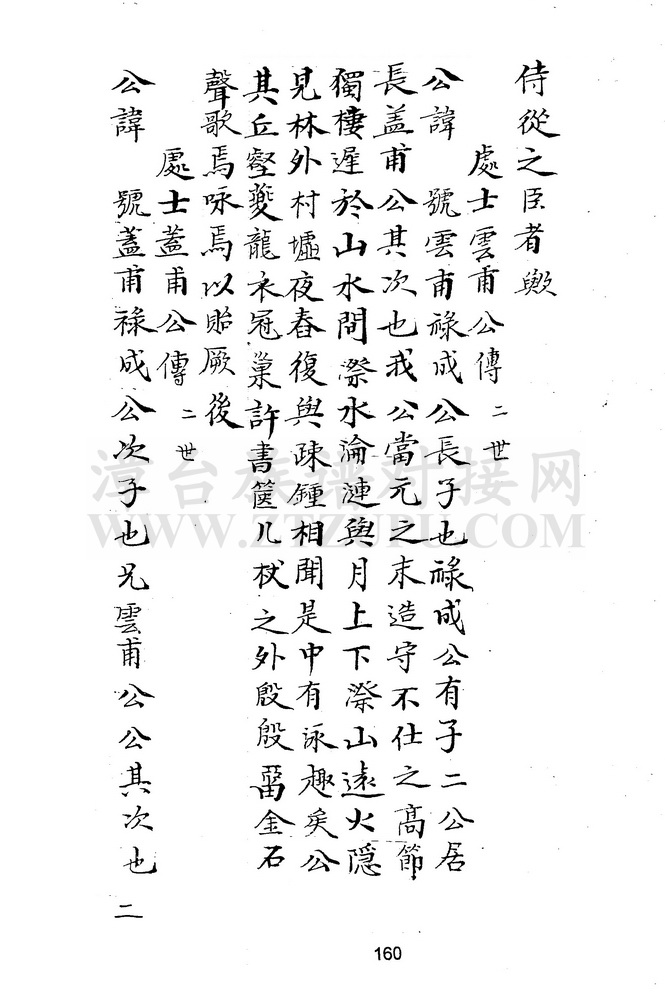 侍從之臣者歟
處士雲甫公傳 二世
公諱 號雲甫祿成公長子也祿成公有子二公居
長蓋甫公其次也我公當元之末造守不仕之高節
獨棲遲於山水間漈水淪漣與月上下漈山遠火隱
見林外村墟夜舂復與疎鐘相聞是中有泳趣矣公
其丘壑夔龍衣冠巢許書篋几杖之外殷殷留金石
聲歌焉咏焉以貽厥後
處士蓋甫公傳 二世
公諱 號蓋甫祿成公次子也兄雲甫公公其次也二
160
漳台族譜对接网
WWW.ZTZUPU.COM